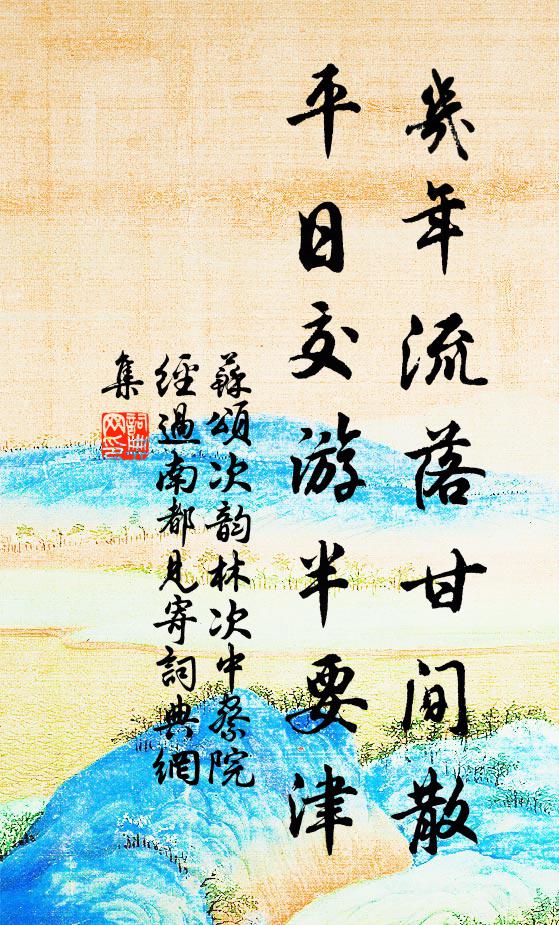 幾年流落甘间散
平日交游半要津
蘇頌次韵林次中察院
經過南都見寄詞典網
集
詞典
网印